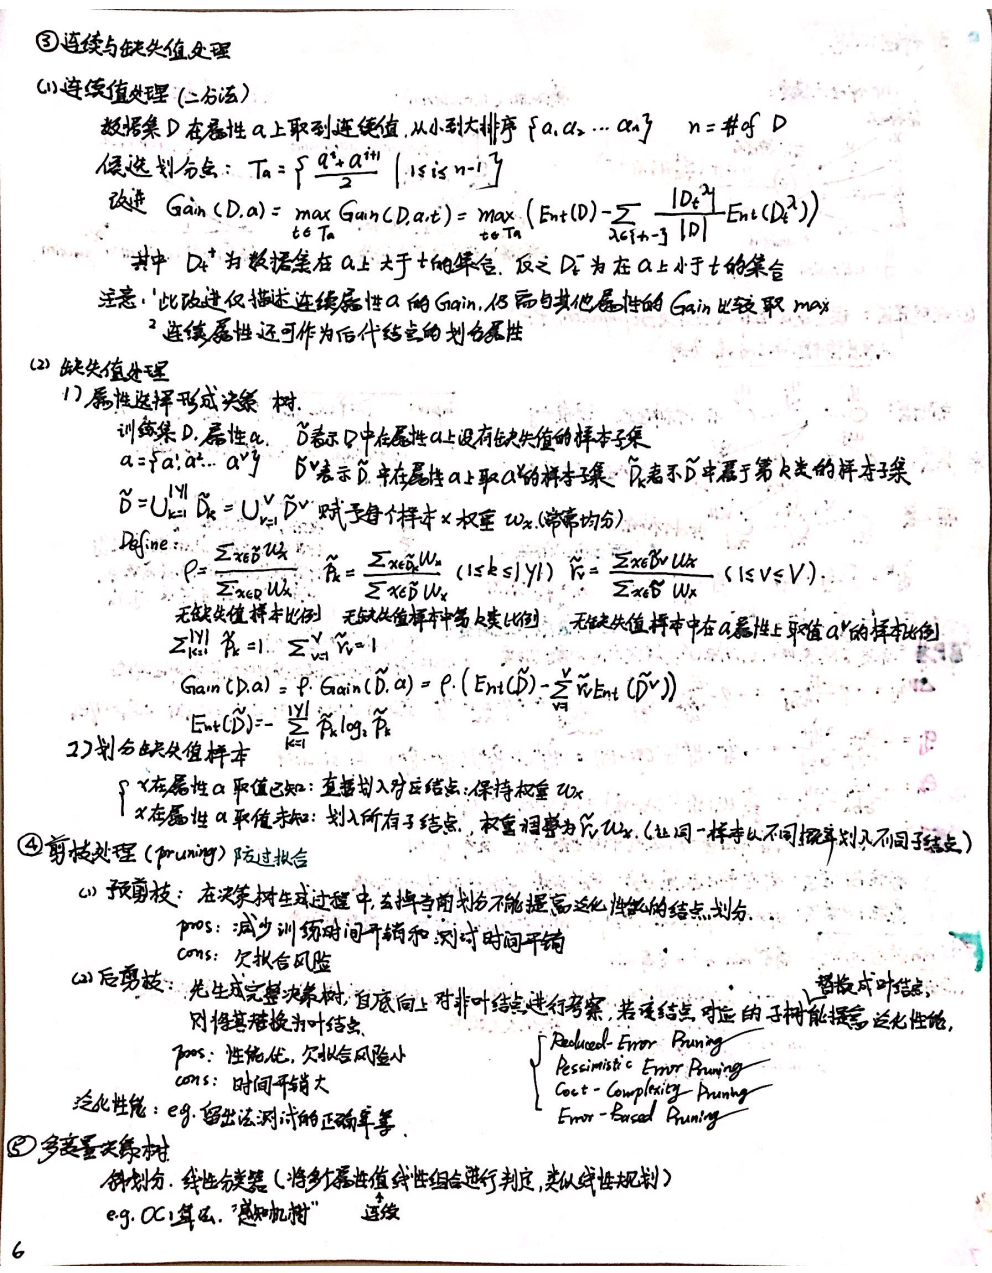 ③连续与缺失值处理
(1)连续值处理(二分法)
数据集D在属性a上取到连续值,从小到大排序{a₁a₂…aₙ} n=#of D
候选划分点: Tₐ={(aⁱ+aⁱ⁺¹)/2 | 1≤i≤n-1}
改进 Gain(D,a)= max_{t∈Tₐ} Gain(D,a,t)= max_{t∈Tₐ} (Ent(D)-∑_{λ∈{+,-}} |D_t^λ|/|D| Ent(D_t^λ))
其中 D_t⁺为数据集在a上大于t的集合.反之D_t⁻为在a上小于t的集合
注意:¹此改进仅描述连续属性a的Gain.仍需与其他属性的Gain比较取max
²连续属性还可作为后代结点的划分属性
(2)缺失值处理
1)属性选择形成决策树.
训练集D.属性a. D̃表示D中在属性a上没有缺失值的样本子集
a={a¹,a²…aⱽ} D̃ᵛ表示D̃中在属性a上取aᵛ的样本子集 D̃ₖ表示D̃中属于第k类的样本子集
D̃=∪_{k=1}^{|y|} D̃ₖ=∪_{v=1}^{V} D̃ᵛ 赋予每个样本x权重wₓ(常常均分)
Define:
ρ=∑_{x∈D̃}wₓ/∑_{x∈D}wₓ p̃ₖ=∑_{x∈D̃ₖ}wₓ/∑_{x∈D̃}wₓ (1≤k≤|y|) r̃ᵥ=∑_{x∈D̃ᵛ}wₓ/∑_{x∈D̃}wₓ (1≤v≤V).
无缺失值样本比例 无缺失值样本中第k类比例 无缺失值样本中在a属性上取值aᵛ的样本比例
∑_{k=1}^{|y|} p̃ₖ=1. ∑_{v=1}^{V} r̃ᵥ=1
Gain(D,a)=ρ.Gain(D̃,a)=ρ.(Ent(D̃)-∑_{v=1}^{V} r̃ᵥEnt(D̃ᵛ))
Ent(D̃)=-∑_{k=1}^{|y|} p̃ₖlog₂p̃ₖ
2)划分缺失值样本
{x在属性a取值已知:直接划入对应结点:保持权重wₓ
x在属性a取值未知:划入所有子结点.,权重调整为r̃ᵥwₓ.(让同一样本以不同概率划入不同子结点)
④剪枝处理(pruning)防过拟合
(1)预剪枝: 在决策树生成过程中,去掉当前划分不能提高泛化性能的结点划分.
pros:减少训练时间开销和测试时间开销
cons:欠拟合风险
(2)后剪枝: 先生成完整决策树,自底向上对非叶结点进行考察,若该结点对应的子树替换成叶结点,能提高泛化性能,
则将其替换为叶结点
pros:性能优,欠拟合风险小
cons:时间开销大
{Reduced-Error Pruning
Pessimistic Error Pruning
Cost-Complexity Pruning
Error-Based Pruning
泛化性能:e.g.留出法测试的正确率等.
⑤多变量决策树
斜划分.线性分类器(将多个属性值线性组合进行判定,类似线性规划)
e.g.OC1算法."感知机树" 连续
6